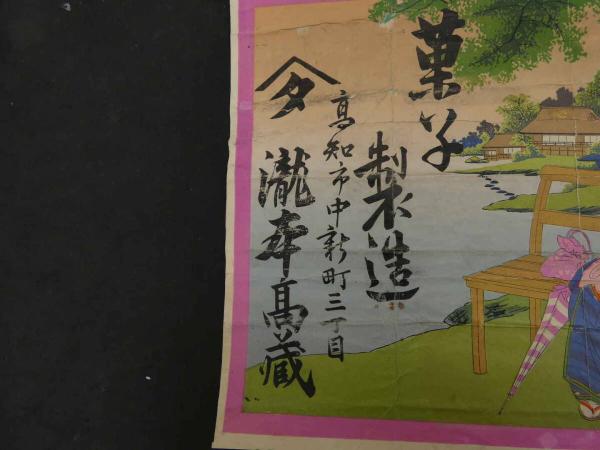 菓子
製造
高知市中新町三丁目
𠆢タ
瀧本高蔵